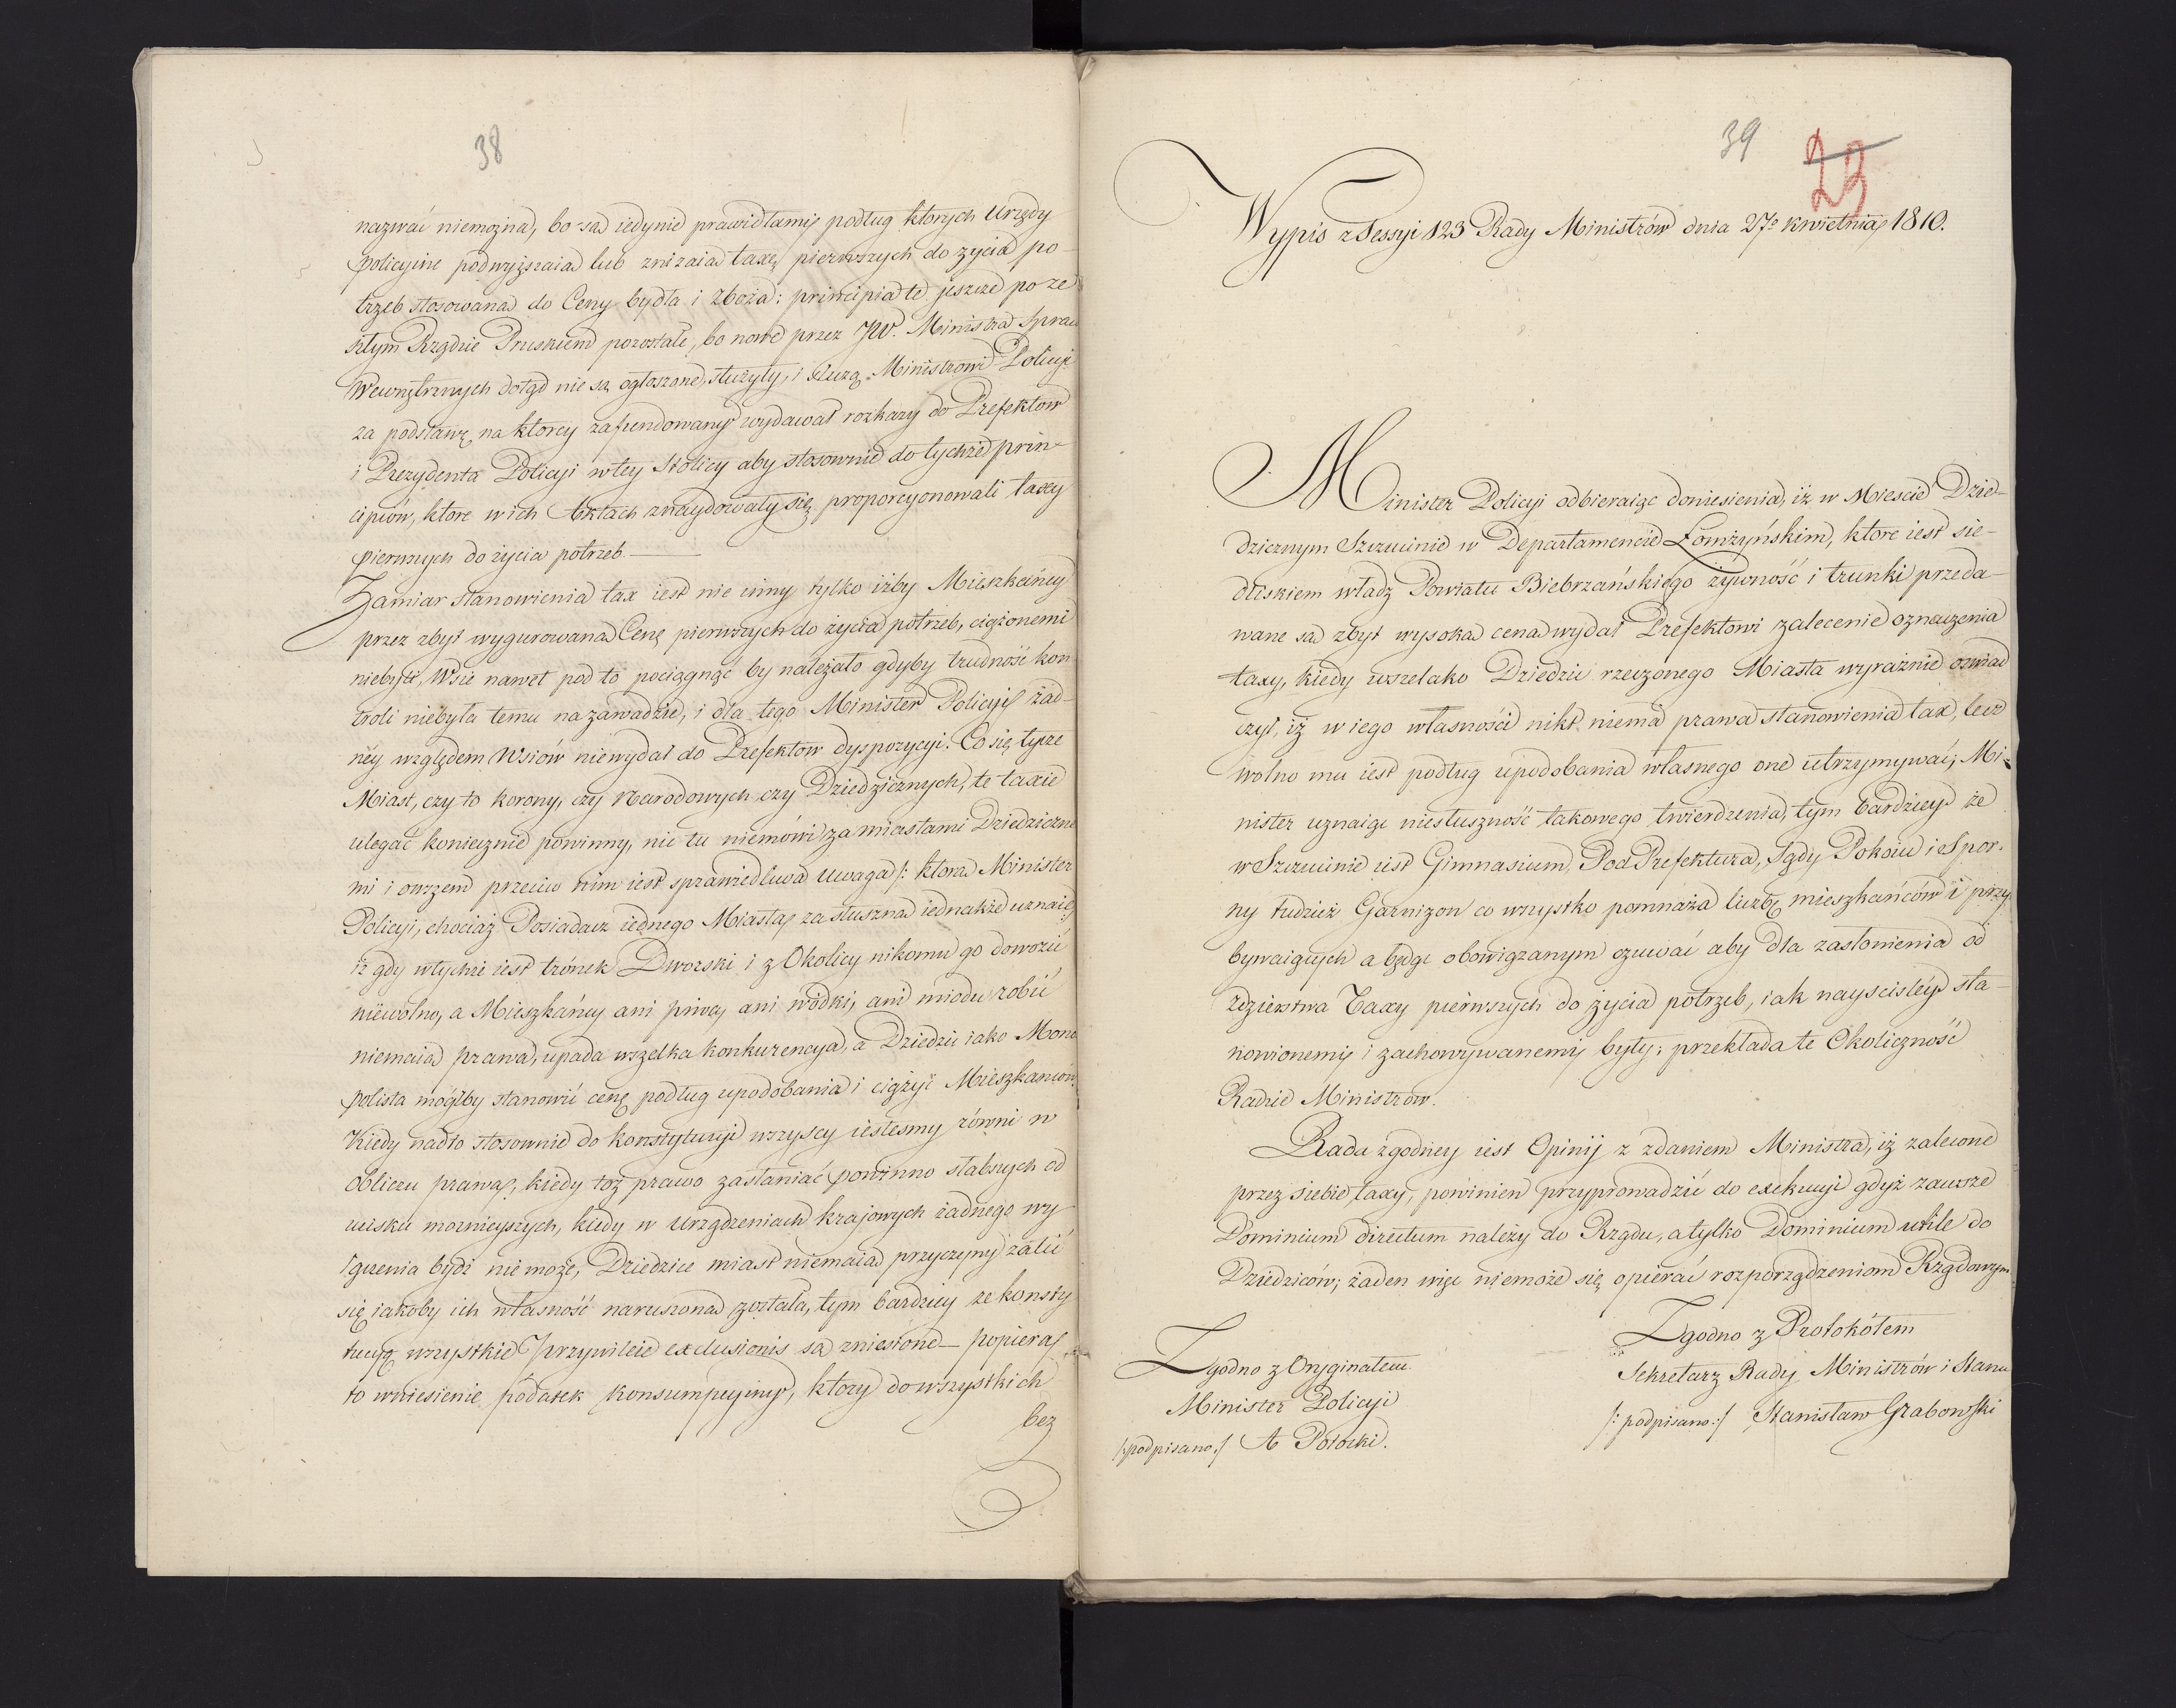 38
nazwać niemożna, bo są iedynie prawidłami podług ktorych Urzędy
policyine podwyższaią lub zniżaią taxę pierwszych do życia po-
trzeb stosowaną do Ceny bydła i zboża: principia te jeszcze po ze
szłym Rządzie Pruskiem pozostałe, bo nowe przez JW. Ministra Spraw
Wewnętrznych dotąd nie są ogłoszone, służyły, i służą Ministrowi Policyi
za podstawę, na ktorey zafundowany wydawał rozkazy do Prefektow
i Prezydenta Policyi w tey Stolicy aby stosownie do tychże prin-
cipiów, ktore w ich Aktach znaydowały się proporcyonowali taxy
pierwszych do życia potrzeb.
Zamiar stanowienia tax iest nie inny tylko iżby Mieszkańcy
przez zbyt wygurowaną Cenę pierwszych do życia potrzeb, ciążonemi
niebyli, Wsie nawet pod to pociągnąć by należało gdyby trudność kon-
troli niebyła temu na zawadzie, i dla tego Minister Policyi żad-
néy względem Wsiów niewydał do Prefektow dyspozycyi. Co się tycze
Miast, czy to korony, czy Narodowych czy Dziedzicznych, te taxie
ulegać koniecznie powinny, nic tu niemówi za miastami Dziedziczne
mi i owszem przeciw nim iest sprawiedliwa uwaga /: ktorą Minister
Policyi, chociaż Posiadacz iednego Miasta, za słuszną iednakże uznaie :/
iż gdy w tychże iest trónek Dworski i z Okolicy nikomu go dowozić
niewolno, a Mieszkańcy ani piwa, ani wódki, ani miodu robić
niemaią prawa, upada wszelka konkurencya, a Dziedzic iako Mono
polista mógłby stanowić cenę podług upodobania i ciążyć Mieszkancow.
Kiedy nadto stosownie do konstytucyi wszyscy iestesmy równi w
obliczu prawa, kiedy toż prawo zasłaniać powinno słabszych od
ucisku mocnieyszych, kiedy w urządzeniach krajowych żadnego wy
łączenia bydź nie może, Dziedzice miast niemaią przyczyny żalić
się jakoby ich własność naruszoną została, tym bardziey że konsty
tucyą wszystkie przywileie exclusionis są zniesione – popiera
to wniesienie podatek konsumpcyiny, ktory do wszystkich
bez
39 23
Wypis z Sessyi 123 Rady Ministrów dnia 27o kwietnia 1810.
Minister Policyi odbieraiąc doniesienia, iż w Miescie Dzie-
dzicznym Szczucinie w Departamencie Łomżyńskim, ktore iest sie-
dliskiem władz Powiatu Biebrzańskiego żywność i trunki przeda-
wane są zbyt wysoką ceną wydał Prefektowi zalecenie oznaczenia
taxy, kiedy wszelako Dziedzic rzeczonego Miasta wyraźnie oswiad
czył, iż w iego własności nikt niema prawa stanowienia tax, lecz
wolno mu iest podług upodobania własnego one utrzymywać; Mi-
nister uznaiąc niesłuszność takowego twierdzenia, tym bardziey że
w Szczucinie iest Gimnasium, Pod Prefektura, Sądy Pokoiu i Spor-
ny tudzież Garnizon co wszystko pomnaża liczbę mieszkańców i przy
bywaiących a będąc obowiązanym czuwać aby dla zasłonienia od
zdzierstwa Taxy pierwszych do życia potrzeb, iak nayscisley sta-
nowionemi i zachowywanemi były; przekłada te Okoliczność
Radzie Ministrów.
Rada zgodney iest Opinij z zdaniem Ministra, iż zalecone
przez siebie taxy, powinien przyprowadzić do exekucyi gdyż zawsze
Dominium directum należy do Rządu, a tylko Dominium utile do
Dziedziców; żaden więc niemoże się opierać rozporządzeniom Rządowym.
Zgodno z Protokółem
Sekretarz Rady Ministrów i Stanu
/: podpisano :/ Stanisław Grabowski
Zgodno z Oryginałem
Minister Policyi
/: podpisano :/ A Potocki.